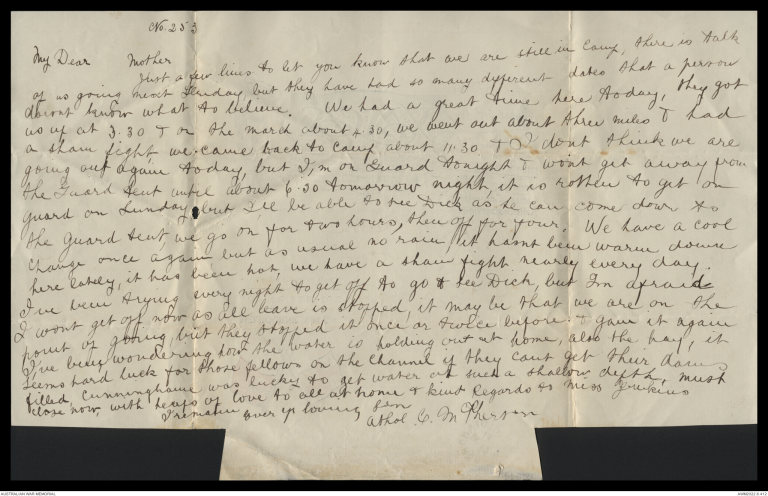 No. 253
My Dear Mother
Just a few lines to let you know that we are still in Camp, there is talk
of us going next Sunday but they have had so many different dates that a person
doesnt know what to believe. We had a great time here today, they got
us up at 3.30 & on the march about 4.30, we went out about three miles & had
a sham fight, we came back to camp about 11.30 & I dont think we are
going out again today, but I,m on Guard tonight & wont get away from
the Guard tent until about 6.30 tomorrow night, it is rotten to get on
guard on Sunday, but I,ll be able to see Dick as he can come down to
the guard tent, we go on for two hours, then off for four. We have a cool
change once again but as usual no rain, it hasnt been warm down
here lately, it has been hot, we have a sham fight nearly every day.
I've been trying every night to get off to go & see Dick, but I'm afraid
I wont get off now as all leave is stopped, it may be that we are on the
point of going, but they stopped it once or twice before & gave it again
I,ve been wondering how the water is holding out at home, also the hay, it
seems hard luck for those fellows on the Channel if they cant get their dams
filled, Cunninghame was lucky to get water at such a shallow depth, must
close now with heaps of love to all at home & kind regards to Miss Jenkins
I remain ever yr loving Son
Athol C. McPherson
AUSTRALIAN WAR MEMORIAL
AWM2022.6.412